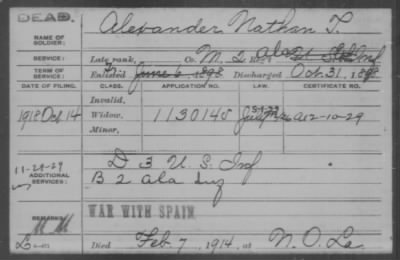 DEAD.
NAME OF SOLDIER: Alexander Nathan T.
SERVICE: Late rank, Co. M, 2 Ala Inf
TERM OF SERVICE: Enlisted June 6, 1898, Discharged Oct. 31, 1898
DATE OF FILING. CLASS. APPLICATION NO. LAW. CERTIFICATE NO.
Invalid,
1918 Oct 14 Widow, 1130145 A 12-10-29
Minor,
11-29-29
ADDITIONAL SERVICES: D 3 U. S. Inf
B 2 Ala Inf
WAR WITH SPAIN
REMARKS:
Died Feb. 7, 1914, at N. O. La.